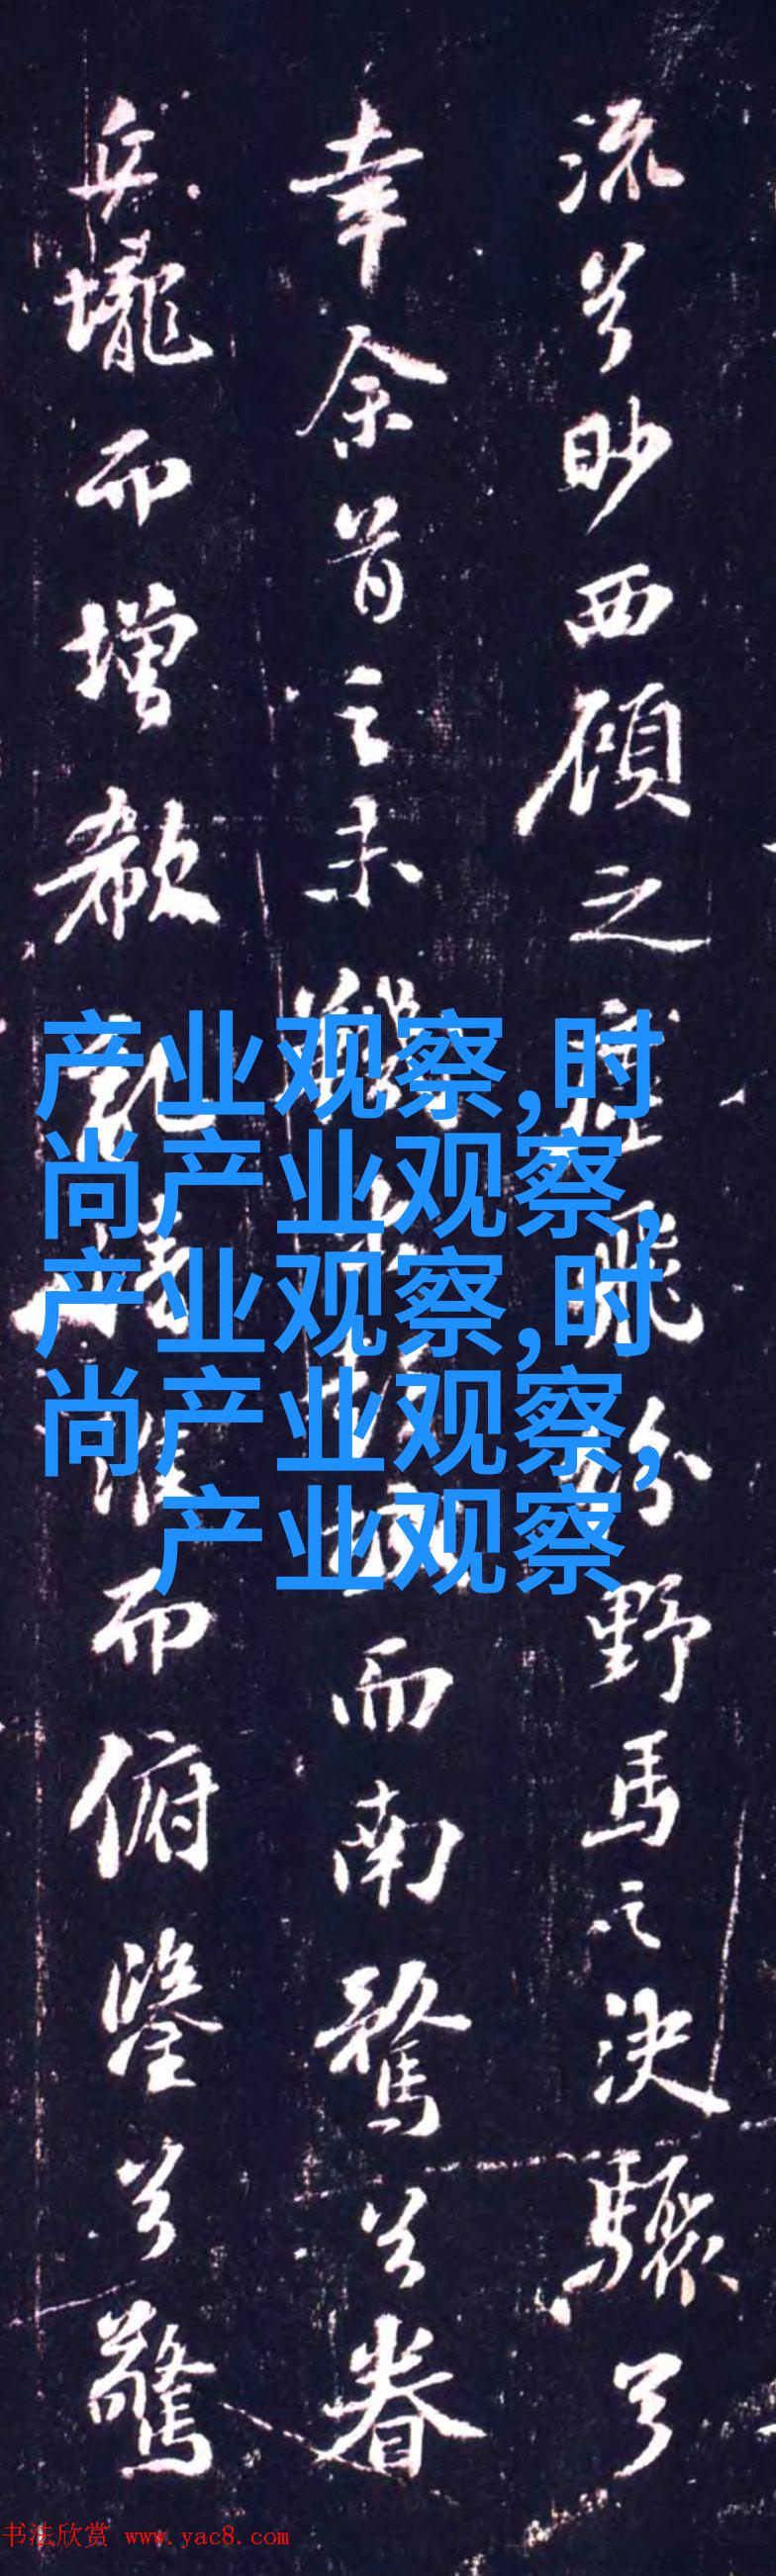 流兮眇西顧之飛紛野馬之決驟兮
幸余首之未而南騖兮眷
丘壠而增欷而俯鑒兮驚
产业观察,时
尚产业观察,
产业观察,时
尚产业观察,
产业观察
书法欣赏 www.yac8.com